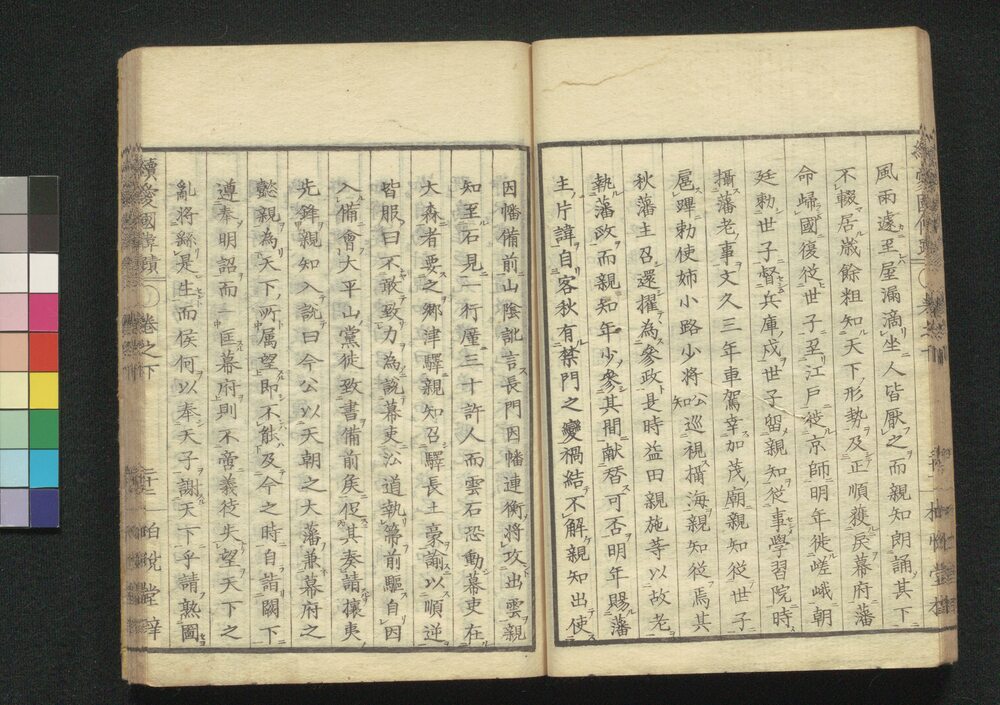 風雨遽至屋漏滴坐人皆厭之而親知朗誦其下
不輟居歲餘粗知天下形勢及正順獲戾幕府藩
命歸國復從世子至江戶從京師明年徙嵯峨朝
廷勅世子督兵庫戍世子留親知從事學習院時
攝藩老事文久三年車駕幸加茂廟親知從世子
扈蹕勅使姉小路少將公知巡視攝海親知從焉其
秋藩主召還擢為參政是時益田親施等以故老
執藩政而親知年少參其間献替可否明年賜藩
主片諱自客秋有禁門之變禍結不解親知出使
因幡備前山陰訛言長門因幡連衡將攻出雲親
知至石見一行厪三十許人而雲石恐動幕吏在
大森者要之郷津驛親知召驛長土豪諭以順逆
皆服曰不敢致力為說幕吏㳂道執箒前驅自因
入備會大平山黨徒致書備前矦促其奏請攘夷
先鋒親知入說曰今公以天朝之大藩兼幕府之
懿親為天下所属望即不能及今之時自詣闕下
遵奉明詔而一匡幕府則不啻義徒失望天下之
亂將繇是生而侯何以奉天子謝天下乎請熟圖
續愛國偉績
卷之下